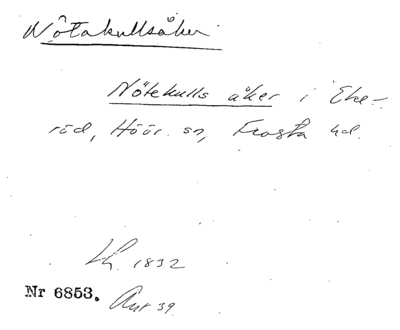 Nötakullsåker
Nötekulls åker i Eke-
röd, Höör sn, Frosta hd.
Lh. 1832
Nr 6853. Avt 39